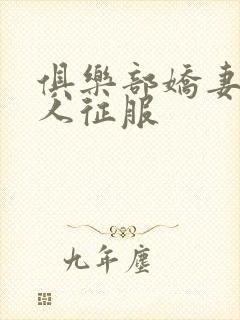 俱樂部嬌妻
人征服
九年塵